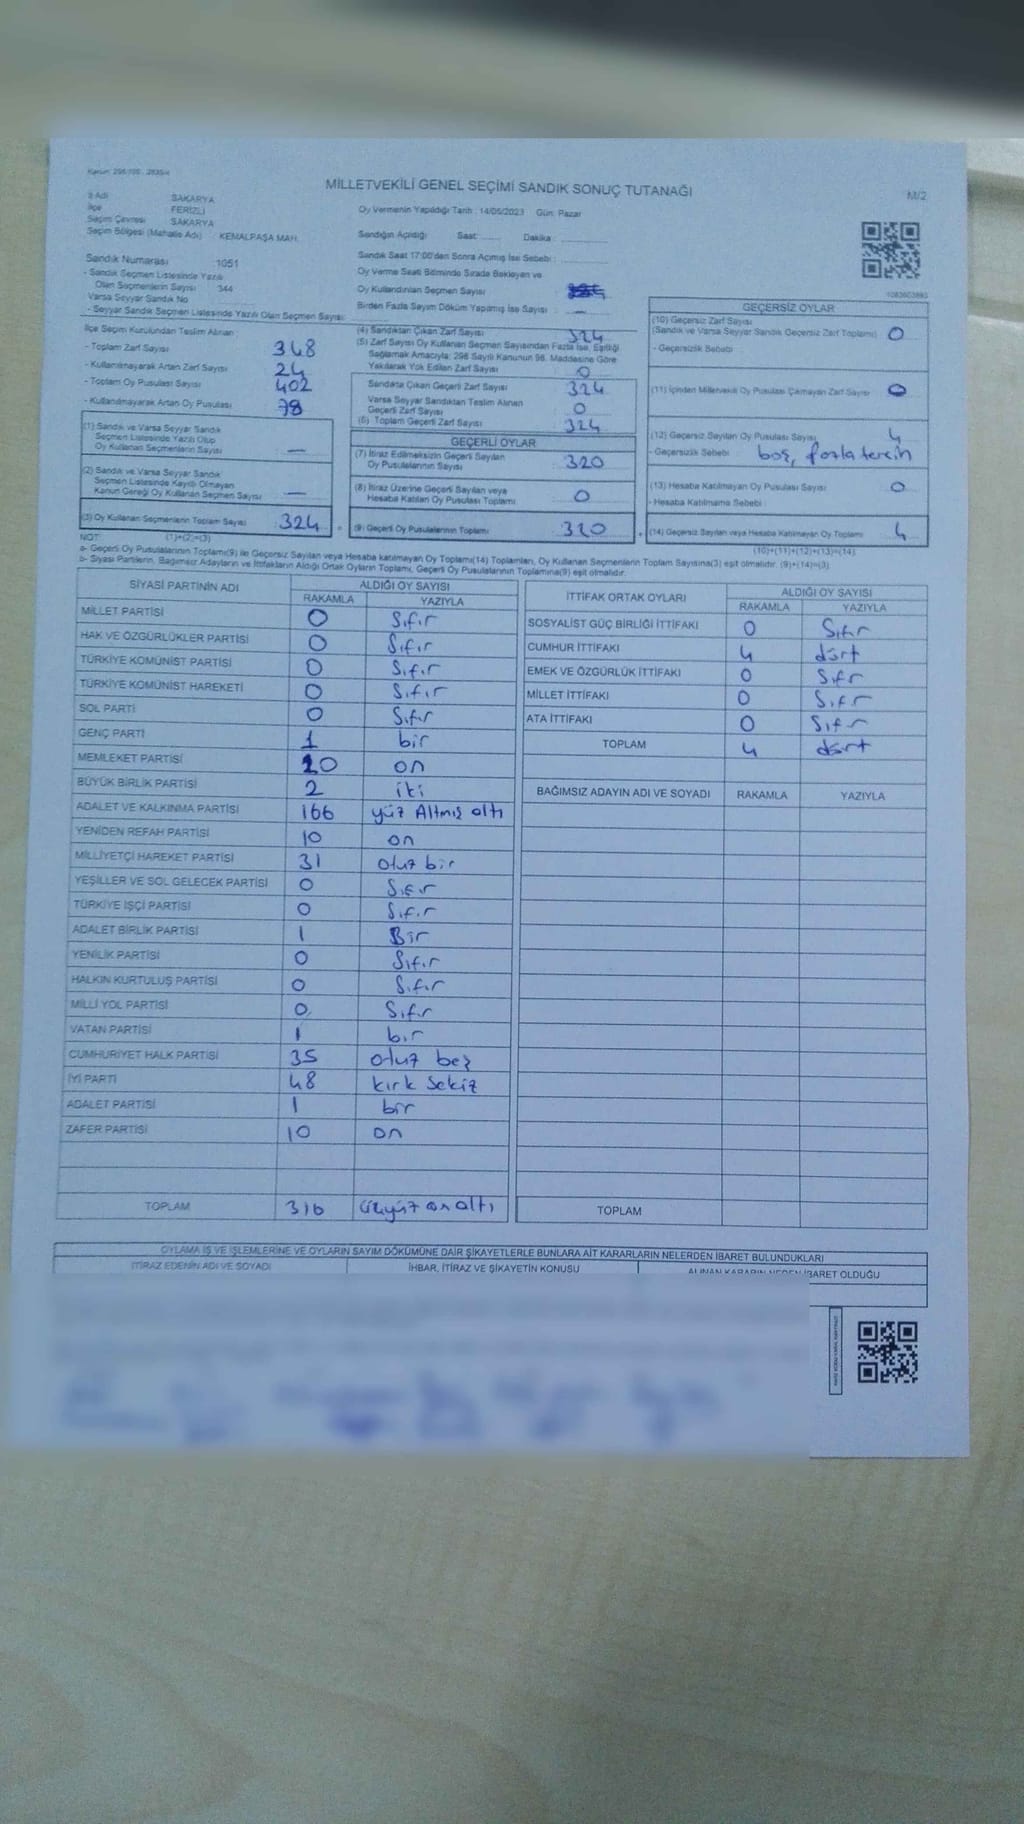 MİLLETVEKİLİ GENEL SEÇİMİ SANDIK SONUÇ TUTANAĞI
M/2
İl Adı SAKARYA
İlçe FERİZLİ
Seçim Çevresi SAKARYA
Seçim Bölgesi (Mahalle Adı) : KEMALPAŞA MAH.
Oy Vermenin Yapıldığı Tarih : 14/05/2023 Gün: Pazar
Sandığın Açıldığı Saat: Dakika :
Sandık Saat 17:00'den Sonra Açılmış İse Sebebi :
Oy Verme Saati Bitiminde Sırada Bekleyen ve
Oy Kullandırılan Seçmen Sayısı
Birden Fazla Sayım Döküm Yapılmış İse Sayısı : —
Sandık Numarası : 1051
- Sandık Seçmen Listesinde Yazılı
Olan Seçmenlerin Sayısı : 344
Varsa Seyyar Sandık No
- Seyyar Sandık Seçmen Listesinde Yazılı Olan Seçmen Sayısı:
İlçe Seçim Kurulundan Teslim Alınan :
- Toplam Zarf Sayısı 348
- Kullanılmayarak Artan Zarf Sayısı : 24
- Toplam Oy Pusulası Sayısı 402
- Kullanılmayarak Artan Oy Pusulası 78
(1) Sandık ve Varsa Seyyar Sandık
Seçmen Listesinde Yazılı Olup
Oy Kullanan Seçmenlerin Sayısı : —
(2) Sandık ve Varsa Seyyar Sandık
Seçmen Listesinde Kayıtlı Olmayan
Kanun Gereği Oy Kullanan Seçmen Sayısı : —
(3) Oy Kullanan Seçmenlerin Toplam Sayısı 324
(1)+(2)=(3)
(4) Sandıktan Çıkan Zarf Sayısı 324
(5) Zarf Sayısı Oy Kullanan Seçmen Sayısından Fazla İse, Eşitliği
Sağlamak Amacıyla; 298 Sayılı Kanunun 98. Maddesine Göre
Yakılarak Yok Edilen Zarf Sayısı 0
Sandıkta Çıkan Geçerli Zarf Sayısı 324
Varsa Seyyar Sandıktan Teslim Alınan
Geçerli Zarf Sayısı 0
(6) Toplam Geçerli Zarf Sayısı 324
GEÇERLİ OYLAR
(7) İtiraz Edilmeksizin Geçerli Sayılan
Oy Pusulalarının Sayısı 320
(8) İtiraz Üzerine Geçerli Sayılan veya
Hesaba Katılan Oy Pusulası Toplamı 0
(9) Geçerli Oy Pusulalarının Toplamı 320
GEÇERSİZ OYLAR
(10) Geçersiz Zarf Sayısı
(Sandık ve Varsa Seyyar Sandık Geçersiz Zarf Toplamı) : 0
- Geçersizlik Sebebi
(11) İçinden Milletvekili Oy Pusulası Çıkmayan Zarf Sayısı 0
(12) Geçersiz Sayılan Oy Pusulası Sayısı 4
- Geçersizlik Sebebi boş, fazla tercih
(13) Hesaba Katılmayan Oy Pusulası Sayısı 0
- Hesaba Katılmama Sebebi :
(14) Geçersiz Sayılan veya Hesaba Katılmayan Oy Toplamı 4
(10)+(11)+(12)+(13)=(14)
NOT:
a- Geçerli Oy Pusulalarının Toplamı(9) ile Geçersiz Sayılan veya Hesaba katılmayan Oy Toplamı(14) Toplamları, Oy Kullanan Seçmenlerin Toplam Sayısına(3) eşit olmalıdır. (9)+(14)=(3)
b- Siyasi Partilerin, Bağımsız Adayların ve İttifakların Aldığı Ortak Oyların Toplamı, Geçerli Oy Pusulalarının Toplamına(9) eşit olmalıdır.
SİYASİ PARTİNİN ADI ALDIĞI OY SAYISI
RAKAMLA YAZIYLA
MİLLET PARTİSİ 0 Sıfır
HAK VE ÖZGÜRLÜKLER PARTİSİ 0 Sıfır
TÜRKİYE KOMÜNİST PARTİSİ 0 Sıfır
TÜRKİYE KOMÜNİST HAREKETİ 0 Sıfır
SOL PARTİ 0 Sıfır
GENÇ PARTİ 1 bir
MEMLEKET PARTİSİ 10 on
BÜYÜK BİRLİK PARTİSİ 2 iki
ADALET VE KALKINMA PARTİSİ 166 yüz Altmış altı
YENİDEN REFAH PARTİSİ 10 on
MİLLİYETÇİ HAREKET PARTİSİ 31 otuz bir
YEŞİLLER VE SOL GELECEK PARTİSİ 0 Sıfır
TÜRKİYE İŞÇİ PARTİSİ 0 Sıfır
ADALET BİRLİK PARTİSİ 1 Bir
YENİLİK PARTİSİ 0 Sıfır
HALKIN KURTULUŞ PARTİSİ 0 Sıfır
MİLLİ YOL PARTİSİ 0 Sıfır
VATAN PARTİSİ 1 bir
CUMHURİYET HALK PARTİSİ 35 otuz beş
İYİ PARTİ 48 kırk sekiz
ADALET PARTİSİ 1 bir
ZAFER PARTİSİ 10 on
TOPLAM 316 üçyüz on altı
İTTİFAK ORTAK OYLARI ALDIĞI OY SAYISI
RAKAMLA YAZIYLA
SOSYALİST GÜÇ BİRLİĞİ İTTİFAKI 0 Sıfır
CUMHUR İTTİFAKI 4 dört
EMEK VE ÖZGÜRLÜK İTTİFAKI 0 Sıfır
MİLLET İTTİFAKI 0 Sıfır
ATA İTTİFAKI 0 Sıfır
TOPLAM 4 dört
BAĞIMSIZ ADAYIN ADI VE SOYADI RAKAMLA YAZIYLA
TOPLAM
OYLAMA İŞ VE İŞLEMLERİNE VE OYLARIN SAYIM DÖKÜMÜNE DAİR ŞİKAYETLERLE BUNLARA AİT KARARLARIN NELERDEN İBARET BULUNDUKLARI
İTİRAZ EDENİN ADI VE SOYADI İHBAR, İTİRAZ VE ŞİKAYETİN KONUSU ALINAN KARARIN NEDEN İBARET OLDUĞU